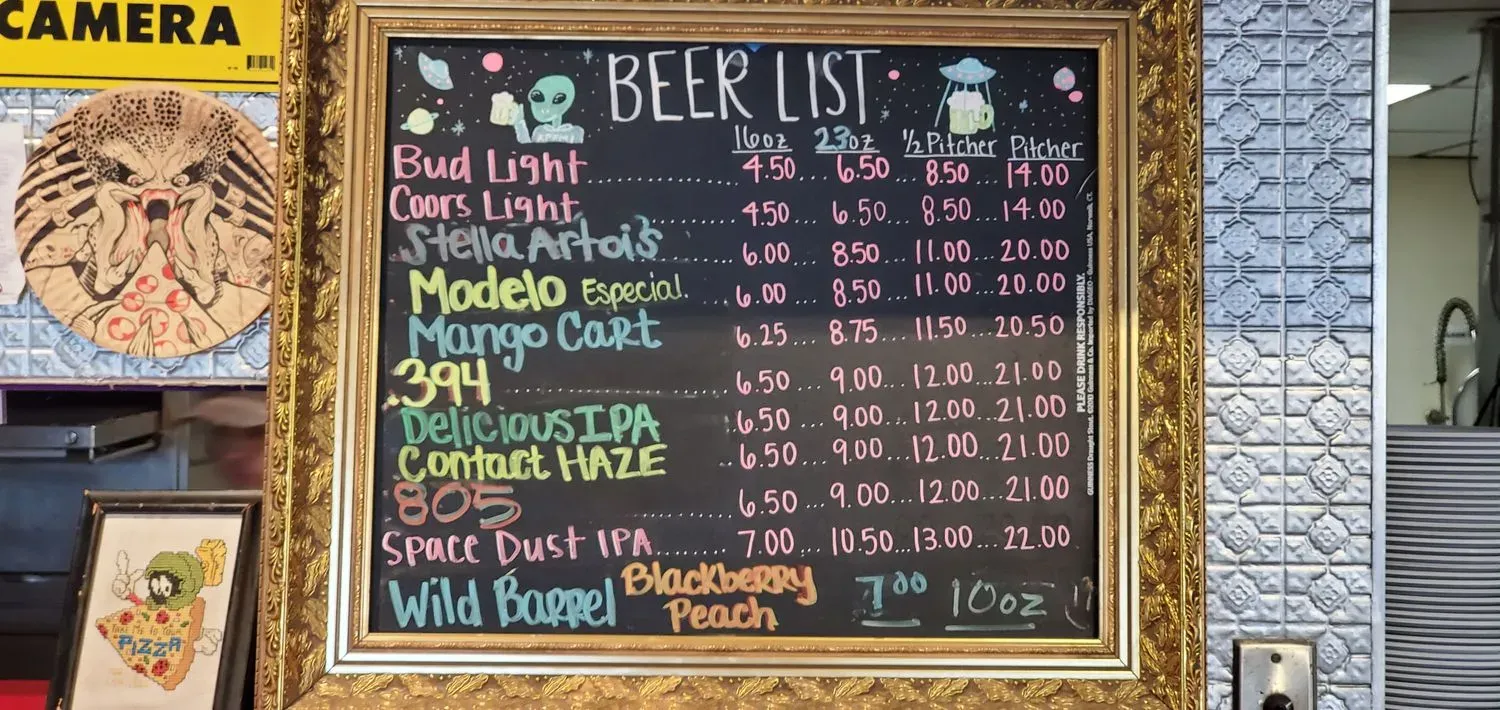 CAMERA
BEER LIST
16oz 23oz 1/2 Pitcher Pitcher
Bud Light.................... 4.50... 6.50... 8.50... 14.00
Coors Light ............ 4.50... 6.50... 8.50... 14.00
Stella Artois 6.00... 8.50... 11.00... 20.00
Modelo Especial. ... 6.00... 8.50... 11.00... 20.00
Mango Cart 6.25... 8.75... 11.50... 20.50
.394 ........................... 6.50... 9.00... 12.00... 21.00
Delicious IPA 6.50... 9.00... 12.00... 21.00
Contact HAZE .. 6.50... 9.00... 12.00... 21.00
805 ............ 6.50... 9.00... 12.00... 21.00
Space Dust IPA........ 7.00... 10.50... 13.00... 22.00
Wild Barrel Blackberry Peach 7.00 10oz
PLEASE DRINK RESPONSIBLY.
TAKE ME TO YOUR
PIZZA